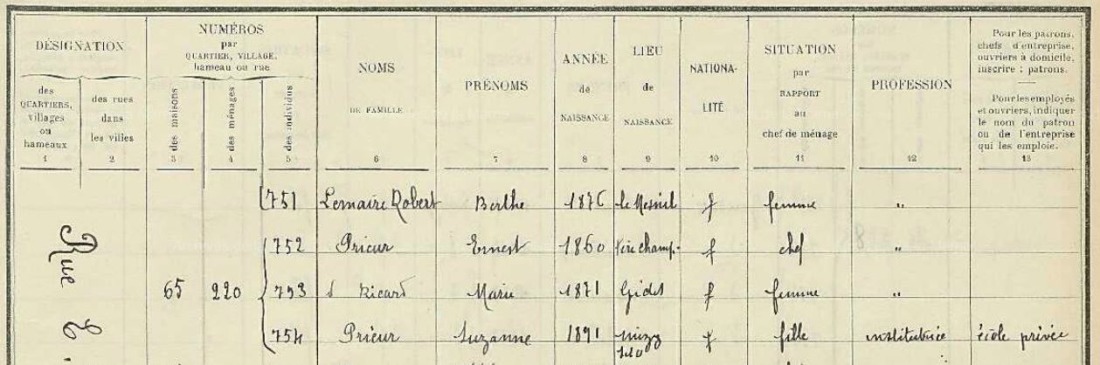 DÉSIGNATION
NUMÉROS
par
QUARTIER, VILLAGE,
hameau ou rue
NOMS
DE FAMILLE
PRÉNOMS
ANNÉE
de
NAISSANCE
LIEU
de
NAISSANCE
NATIONA-
LITÉ
SITUATION
par
RAPPORT
au
chef de ménage
PROFESSION
Pour les patrons,
chefs d'entreprise,
ouvriers à domicile,
inscrire : patrons.
Pour les employés
et ouvriers, indiquer
le nom du patron
ou de l'entreprise
qui les emploie.
des
QUARTIERS,
villages
ou
hameaux
des rues
dans
les villes
des maisons
des ménages
des individus
1 2 3 4 5 6 7 8 9 10 11 12 13
751 Lemaire Robert Berthe 1876 le Mesnil f femme "
752 Prieur Ernest 1860 f chef "
65 220 753 Ricard Marie 1871 f femme "
754 Prieur Suzanne 1891 f fille institutrice école privée
Rue